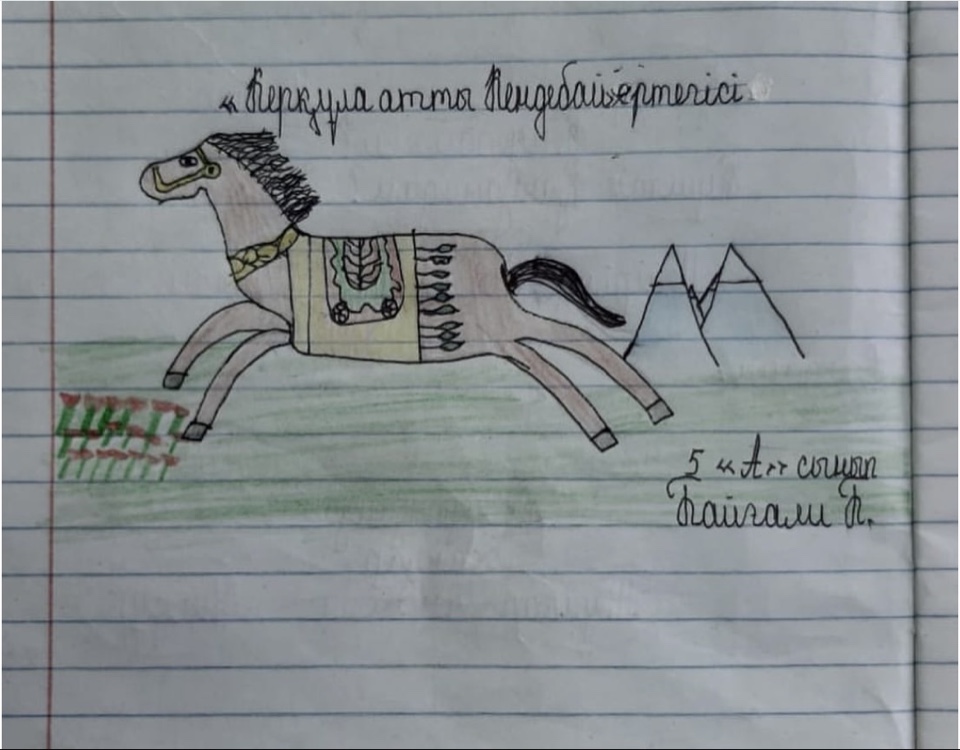 « Керқұла атты Кендебай» ертегісі
5 «А» сынып
Байғали Н.